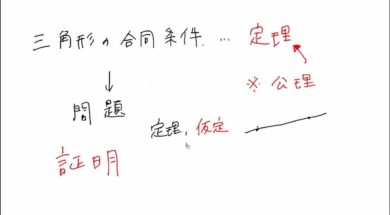 三角形の合同条件 … 定理
※ 公理
問題
定理, 仮定
証明